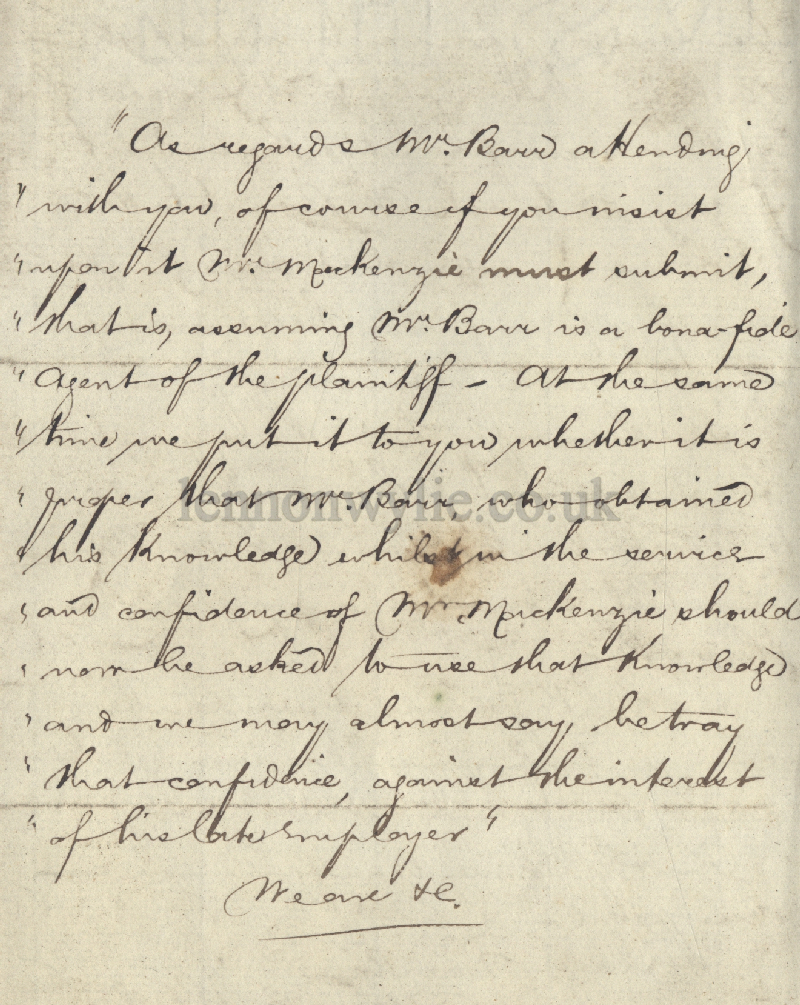 "As regards Mr. Barr attending
"with you, of course if you insist
"upon it Mr. Mackenzie must submit,
"that is, assuming Mr. Barr is a bona-fide
"Agent of the plaintiff - At the same
"time we put it to you whether it is
"proper that Mr. Barr, who obtained
"his knowledge whilst in the service
"and confidence of Mr. Mackenzie should
"now be asked to use that knowledge
"and we may almost say, betray
"that confidence, against the interest
"of his late Employer"
We are &c.
lennonwylie.co.uk